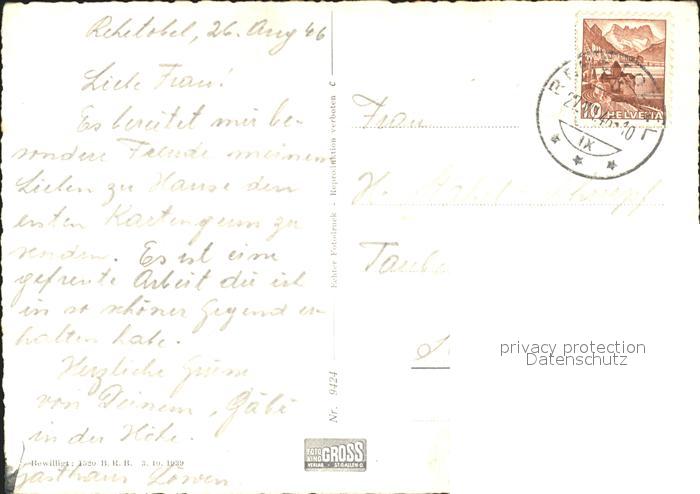 Rehetobel, 26. Aug 46
Liebe Frau!
Es bereitet mir be-
sondere Freude meinen
Lieben zu Hause den
ersten Kartengruss zu
senden. Es ist eine
gefreute Arbeit die ich
in so schöner Gegend er-
halten habe.
Herzliche Grüsse
von Deinem
in der Höhe.
Gasthaus Löwen
Bewilligt: 1520 B. R. B. 3. 10. 1939
Nr. 9424
Echter Fotodruck - Reproduktion verboten c
FOTO
GROSS
VERLAG • ST. GALLEN
Frau
HELVETIA
IX
privacy protection
Datenschutz